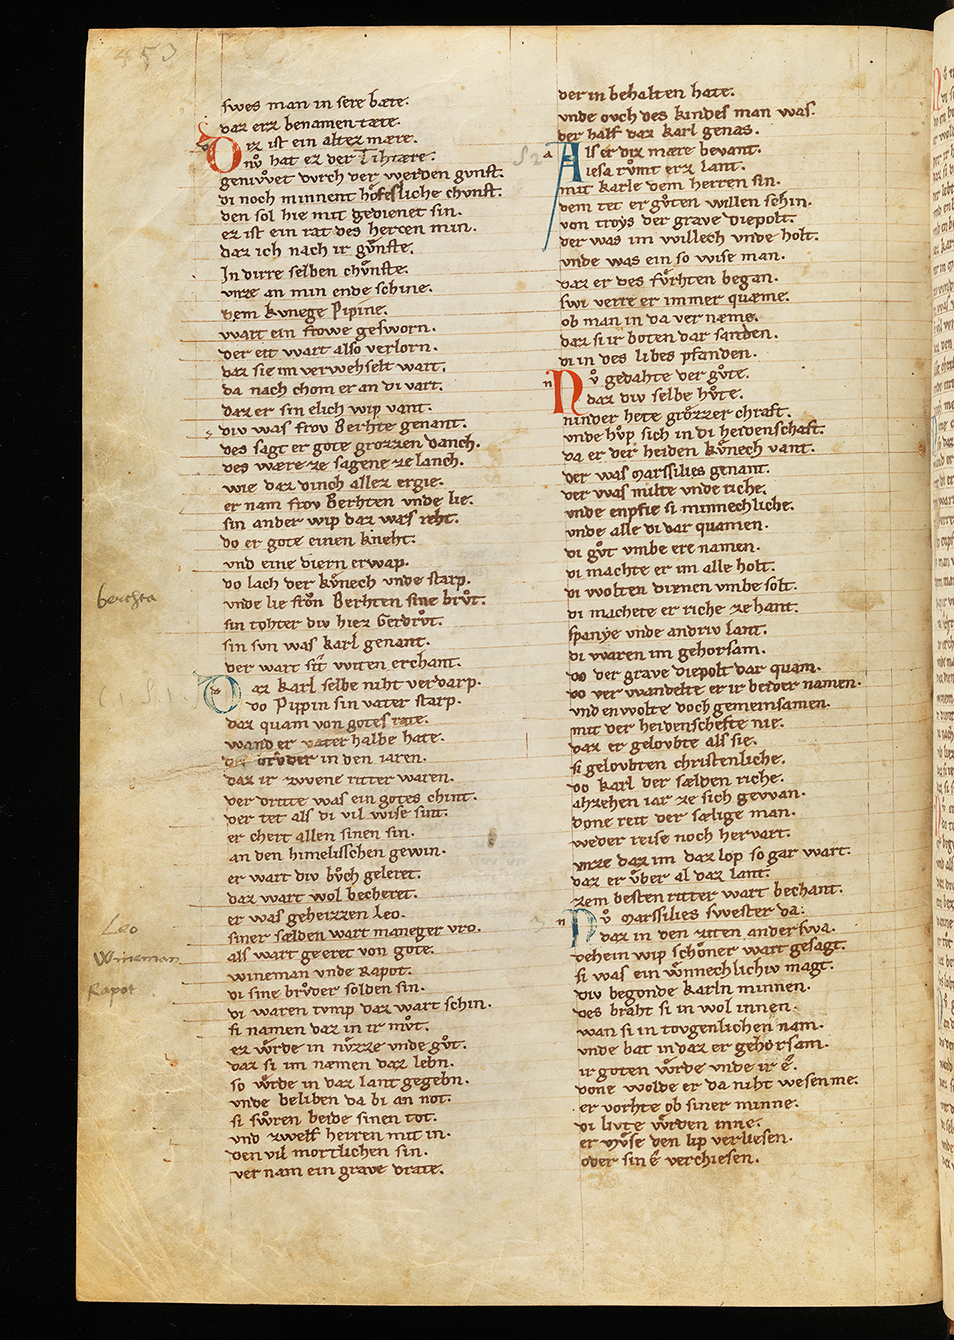 453
swes man in sere bæte.
daz erz benamen tæte.
Diz ist ein altez mære.
nv̊ hat ez der
genivwet dvrch der werden gvnst.
di noch minnent hôfesliche chvnst.
den sol hie mit gedienet sin.
ez ist ein rat des hercen min.
daz ich nach ir gv̊nste.
In dirre selben chv̊nste.
vnze an min ende schine.
Dem kvnege Pipine.
wart ein frowe gesworn.
der eit wart also verlorn.
daz sie im verwehselt wart.
da nach chom er an di vart.
daz er sin elich wip vant.
div was frov Berhte genant.
des sagt er gote grozzen danch.
des wære ze sagene ze lanch.
wie daz dinch allez ergie.
er nam frov Berhten vnde lie.
sin ander wip daz was reht.
do er gote einen kneht.
vnd eine diern erwap.
do lach der kv̊nech vnde starp.
vnde lie frôn Berhten sine brv̊t.
sin tohter div hiez Gerdrv̊t.
sin svn was karl genant.
der wart sît witen erchant.
Daz karl selbe niht verdarp.
do Pippin sin vater starp.
daz quam von gotes rate.
wand er vater halbe hate.
brv̊der in den iaren.
daz ir zwene ritter waren.
der dritte was ein gotes chint.
der tet als di vil wise sint.
er chert allen sinen sin.
an den himelisschen gewin.
er wart div bv̊ch geleret.
daz wart wol becheret.
er was geheizzen Leo.
siner sælden wart maneger vro.
als wart geeret von gote.
wineman vnde Rapot.
di sine brv̊der solden sin.
di waren tvmp daz wart schin.
si namen daz in ir mv̊t.
ez wv̊rde in nv̊zze vnde gv̊t.
daz si im næmen daz lebn.
so wv̊rde in daz lant gegebn.
vnde beliben da bi an not.
si swv̊ren beide sinen tot.
vnd zwelf herren mit in.
den vil mortlichen sin.
vernam ein grave drate.
berchta
Leo
Wineman
Rapot
der in behalten hate.
vnde ovch des kindes man was.
der half daz karl genas.
Als er diz mære bevant.
alesa rv̊mt erz lant.
mit karle dem herren sin.
dem tet er gv̊ten willen schin.
von troẏs der grave diepolt.
der was im willech vnde holt.
vnde was ein so wise man.
daz er des fv̊rhten began.
swi verre er immer quæme.
ob man in da vernæme.
daz si ir boten dar sanden.
di in des libes pfanden.
Nv̊ gedahte der gv̊te.
daz div selbe hv̊te.
ninder hete grôzzer chraft.
vnde hv̊p sich in di heidenschaft.
da er der heiden kv̊nech vant.
der was Marssilies genant.
der was milte vnde riche.
vnde enpfie si minnechliche.
vnde alle di dar quamen.
di gv̊t vmbe ere namen.
di machte er im alle holt.
di wolten dienen vmbe solt.
di machete er riche zehant.
spanẏe vnde andriv lant.
di waren im gehorsam.
do der grave diepolt dar quam.
do verwandelte er ir beider namen.
vnd enwolte doch gemeinsamen.
mit der heidenschefte nie.
daz er gelovbte als sie.
si gelovbten christenliche.
do karl der sælden riche.
ahzehen iar ze sich gewan.
done reit der sælige man.
weder reise noch hervart.
vnze daz im daz lop so gar wart.
daz er v̊ber al daz lant.
zem besten ritter wart bechant.
Nv̊ Marssilies swester da.
daz in den ziten anderswa.
dehein wip schôner wart gesagt.
si was ein wv̊nnechlichiv magt.
div begonde karln minnen.
des braht si in wol innen.
wan si in tovgenlichen nam.
vnde bat in daz er gehorsam.
ir goten wv̊rde vnde ir ê.
done wolde er da niht wesen me.
er vorhte ob siner minne.
di livte wv̊rden inne.
er mv̊se den lip verliesen.
oder sin ê verchiesen.